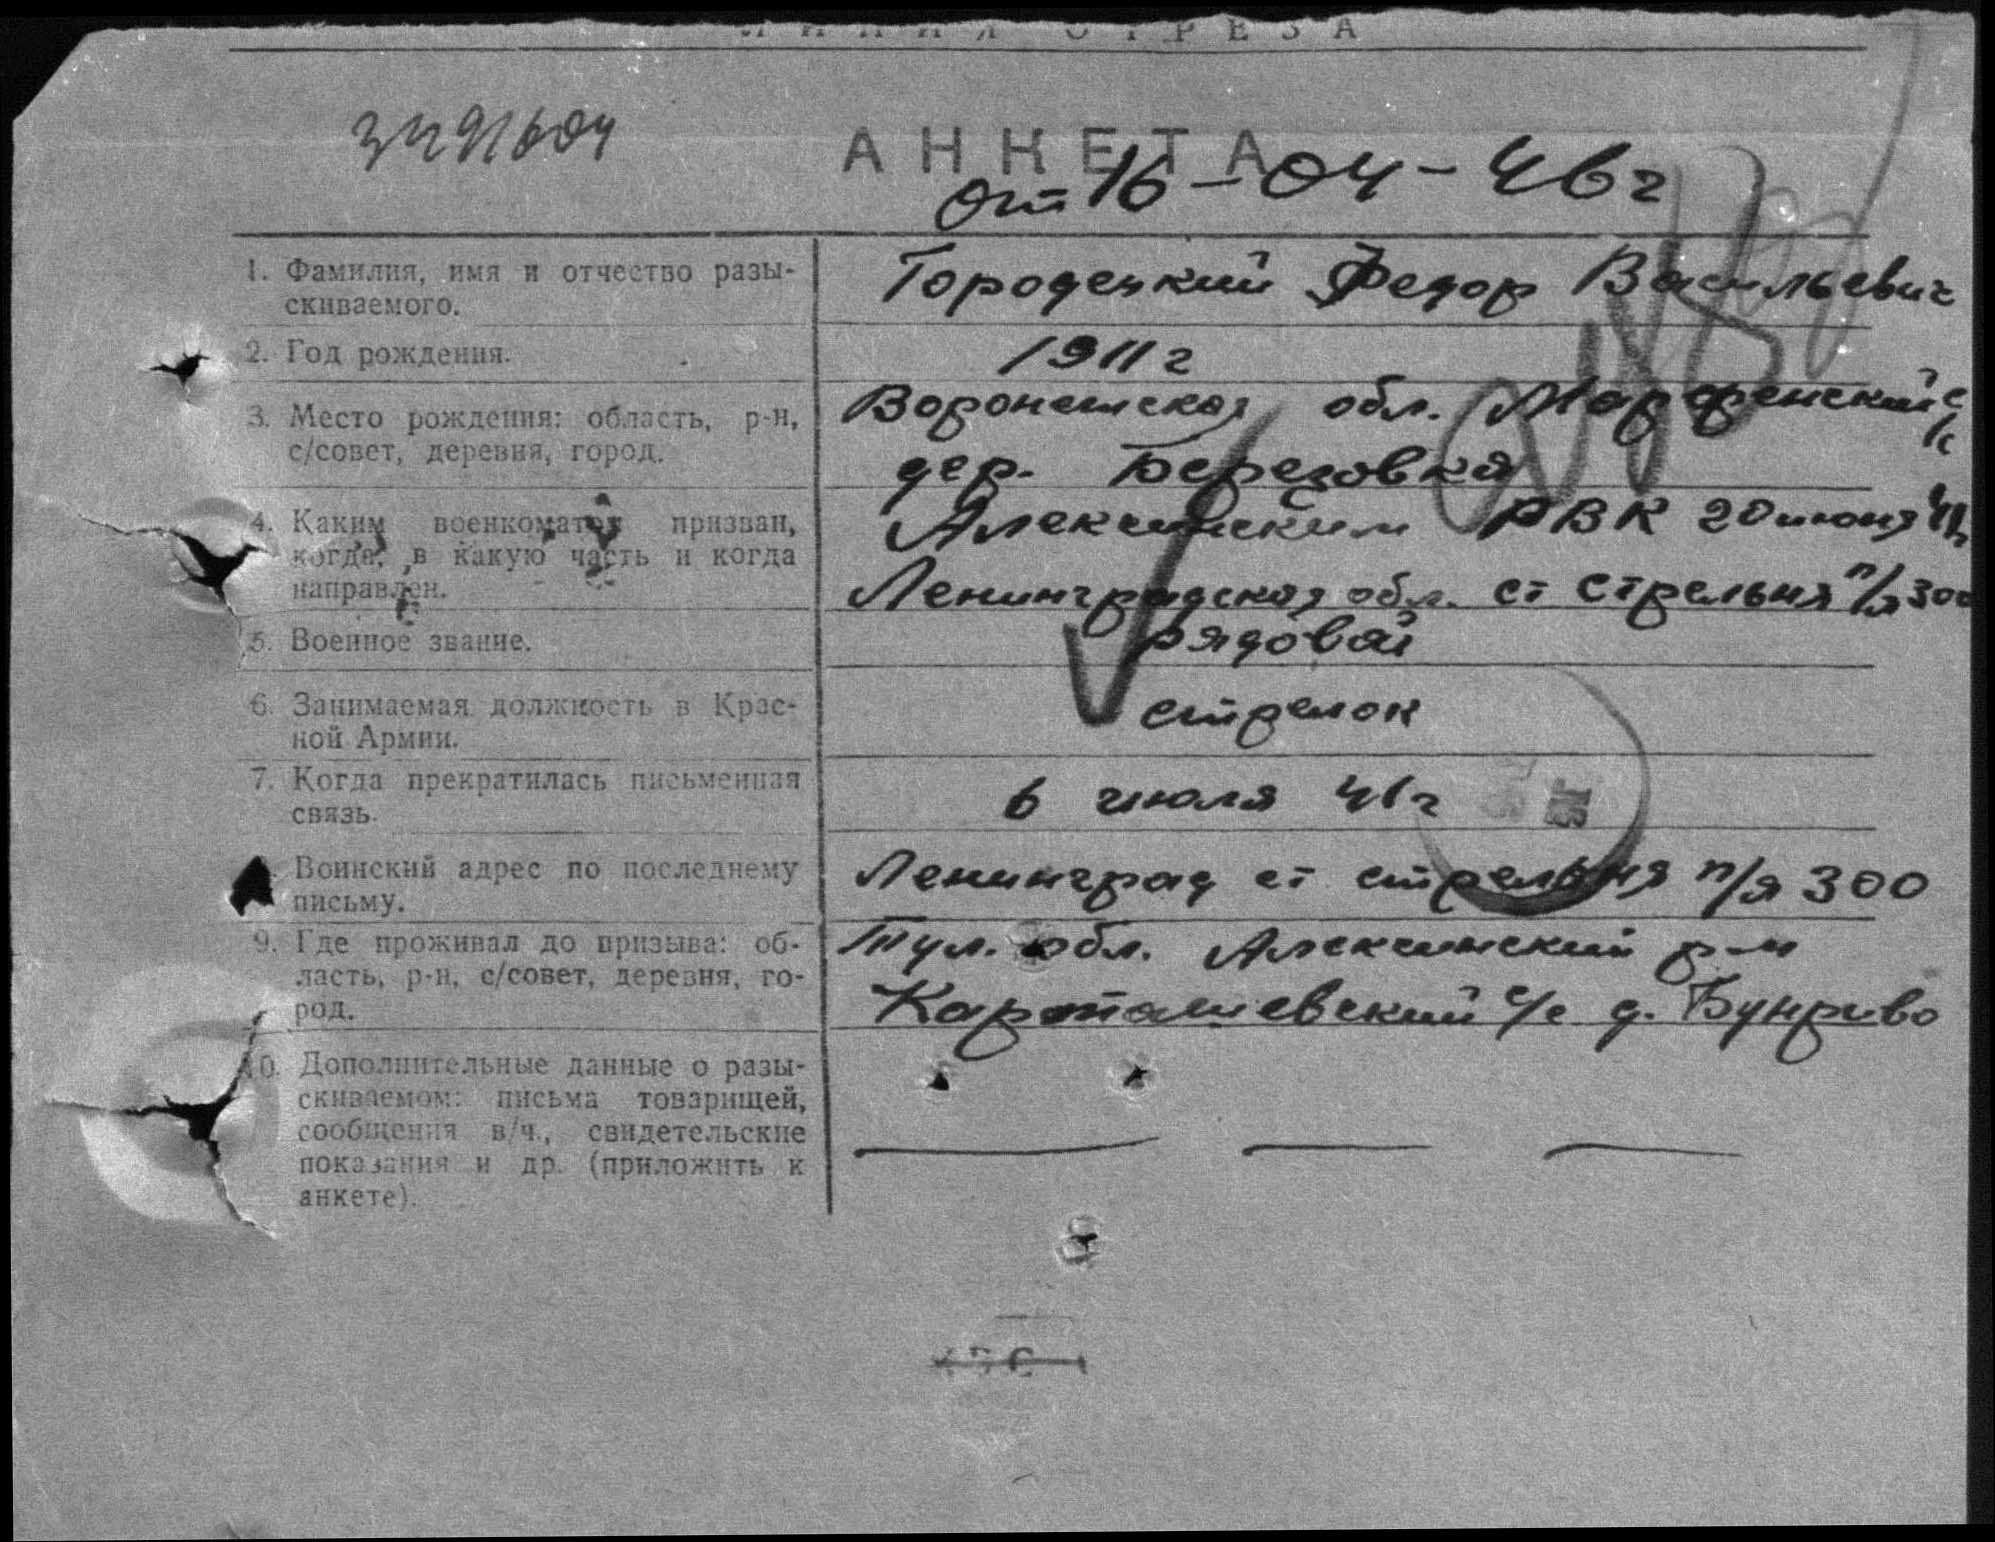 ЛИНИЯ ОТРЕЗА
АНКЕТА
от 16-04-46г
1. Фамилия, имя и отчество разы-
скиваемого.
Городецкий Федор Васильевич
2. Год рождения.
1911г
3. Место рождения: область, р-н,
с/совет, деревня, город.
Воронешская обл. Марфенский с/с
дер. Березовка
4. Каким военкоматом призван,
когда, в какую часть и когда
направлен.
Алексинским РВК 20 июня 41г
Ленинградская обл. ст Стрельня п/я 300
5. Военное звание.
рядовой
6. Занимаемая должность в Крас-
ной Армии.
стрелок
7. Когда прекратилась письменная
связь.
6 июля 41г
Воинский адрес по последнему
письму.
Ленинград ст стрельня п/я 300
9. Где проживал до призыва: об-
ласть, р-н, с/совет, деревня, го-
род.
Тул. обл. Алексинский р-н
Карташевский с/с д.
10. Дополнительные данные о разы-
скиваемом: письма товарищей,
сообщения в/ч., свидетельские
показания и др. (приложить к
анкете).